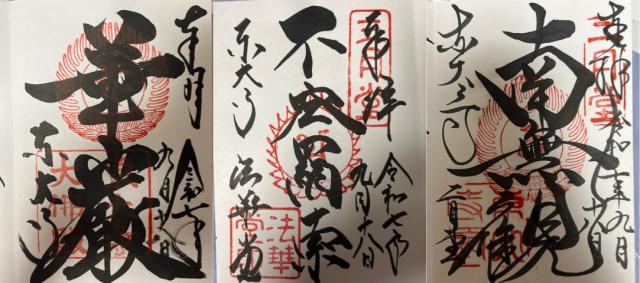 奉拝
令和七年
九月十八日
華厳
東大寺
奉拝
三月堂
令和七年
九月十八日
不空羂索
東大寺
法華堂
法華堂
奉拝
令和七年九月
十八日
二月堂
南無観
東大寺
二月堂